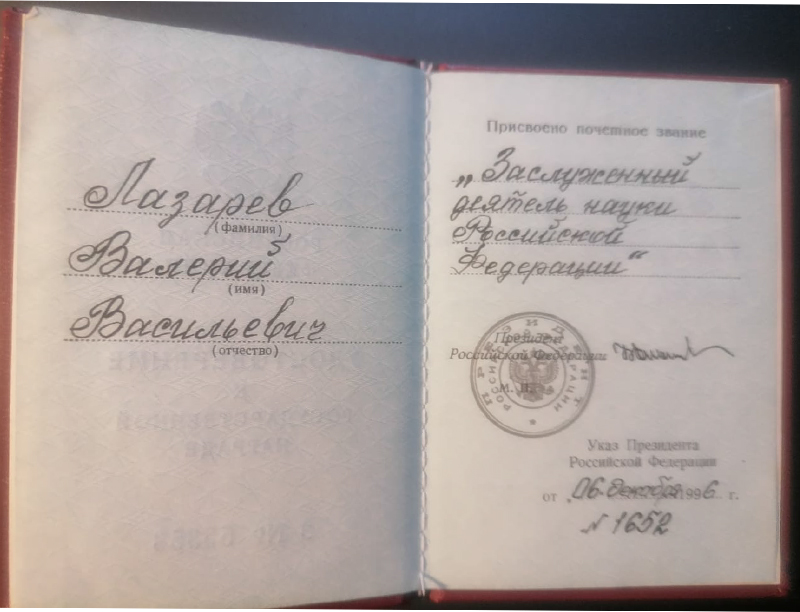 Лазарев
(фамилия)
Валерий
(имя)
Васильевич
(отчество)
Присвоено почетное звание
„Заслуженный
деятель науки
Российской
Федерации“
Президент
Российской Федерации
М. П.
ПРЕЗИДЕНТ
РОССИЙСКОЙ ФЕДЕРАЦИИ
Указ Президента
Российской Федерации
от „06 декабря 1996 г.
N 1652